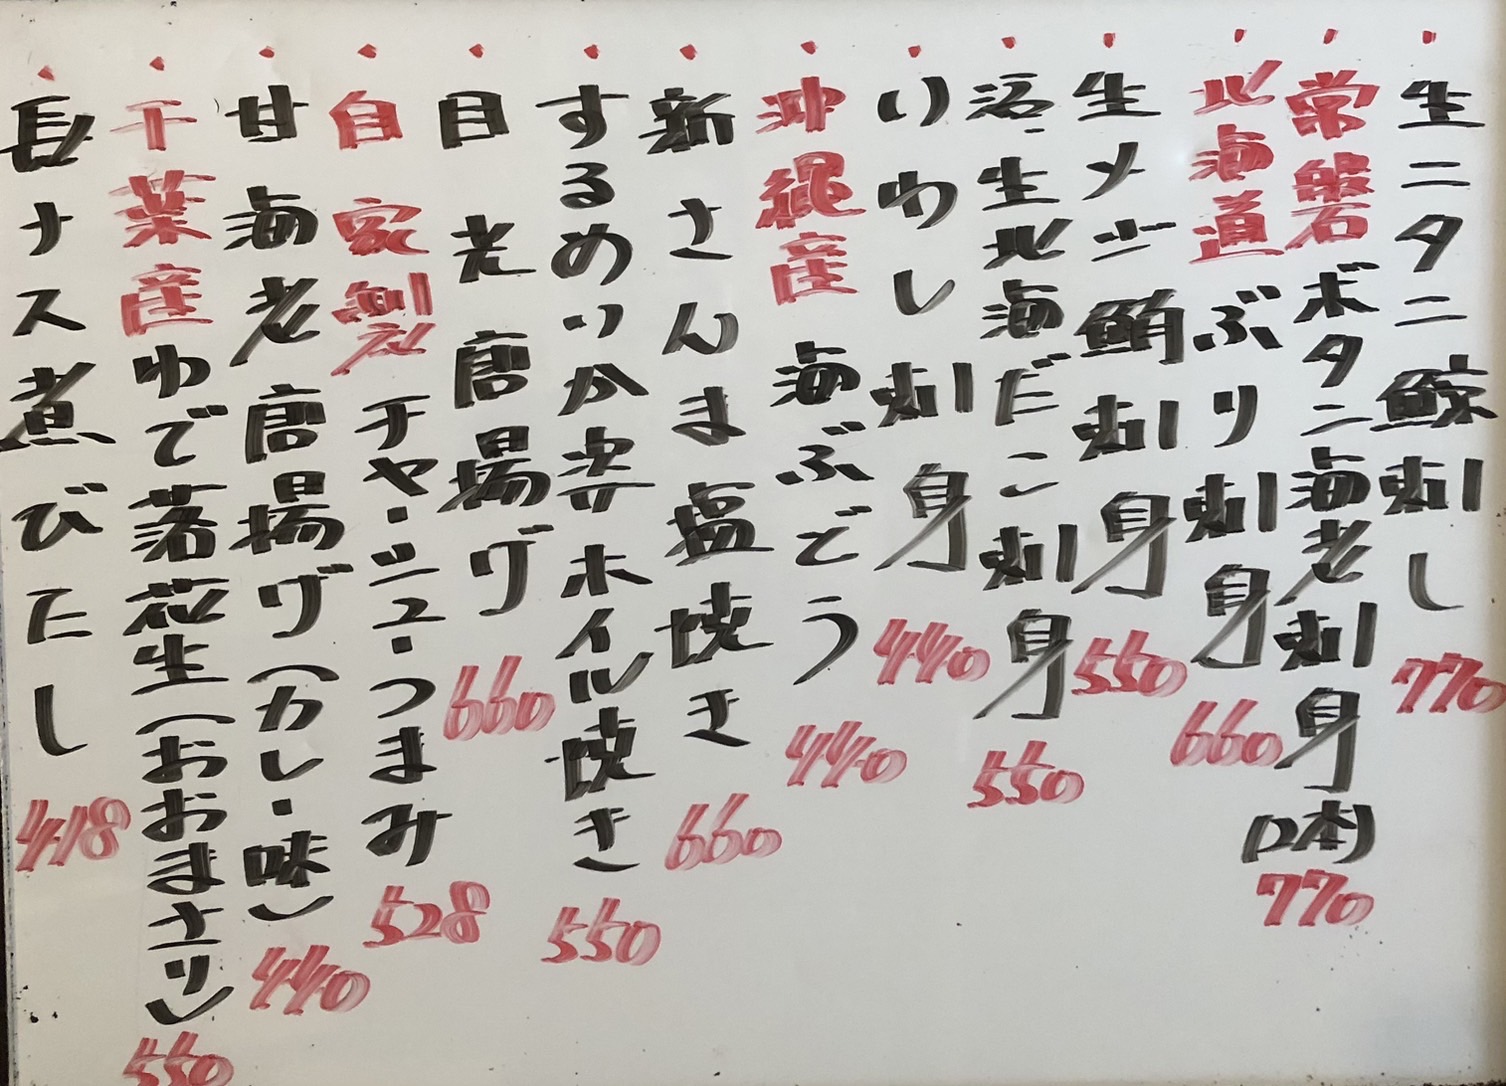 ・生ニタニ鯨刺し 770
・常磐ボタン海老刺身(2本) 770
・北海道ぶり刺身 660
・生メジ鮪刺身 550
・活・生北海だこ刺身 550
・いわし刺身 440
・沖縄産海ぶどう 440
・新さんま塩焼き 660
・するめいか姿ホイル焼き 550
・目光唐揚げ 660
・自家製チャーシューつまみ 528
・甘海老唐揚げ(カレー味) 440
・千葉産ゆで落花生(おおまさり) 550
・長ナス煮びたし 418